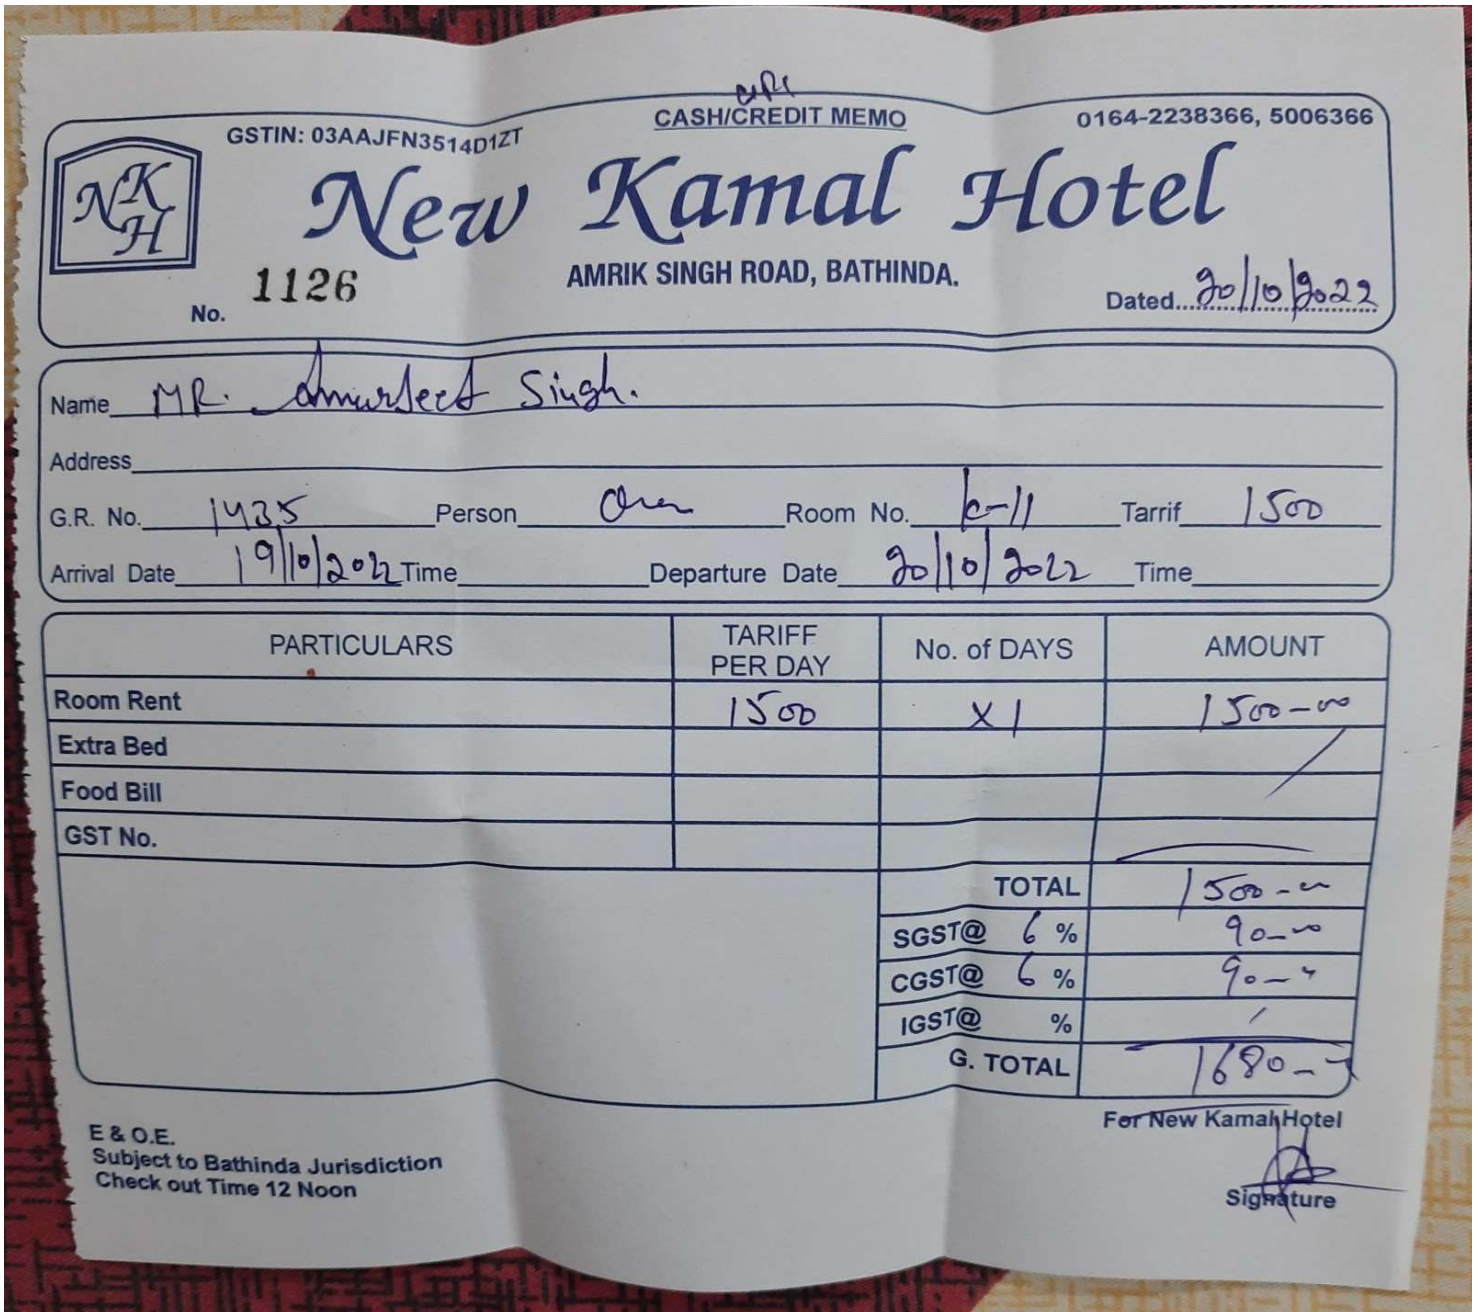 UPI
CASH/CREDIT MEMO
GSTIN: 03AAJFN3514D1ZT
0164-2238366, 5006366
NKH
New Kamal Hotel
AMRIK SINGH ROAD, BATHINDA.
No. 1126
Dated 20/10/2022
Name MR. Singh.
Address
G.R. No. 1435 Person One Room No. K-11 Tarrif 1500
Arrival Date 19/10/2022 Time Departure Date 20/10/2022 Time
PARTICULARS TARIFF PER DAY No. of DAYS AMOUNT
Room Rent 1500 X1 1500-00
Extra Bed
Food Bill
GST No.
TOTAL 1500-00
SGST@ 6 % 90-00
CGST@ 6 % 90-
IGST@ %
G. TOTAL 1680-
For New Kamal Hotel
E & O.E.
Subject to Bathinda Jurisdiction
Check out Time 12 Noon
Signature